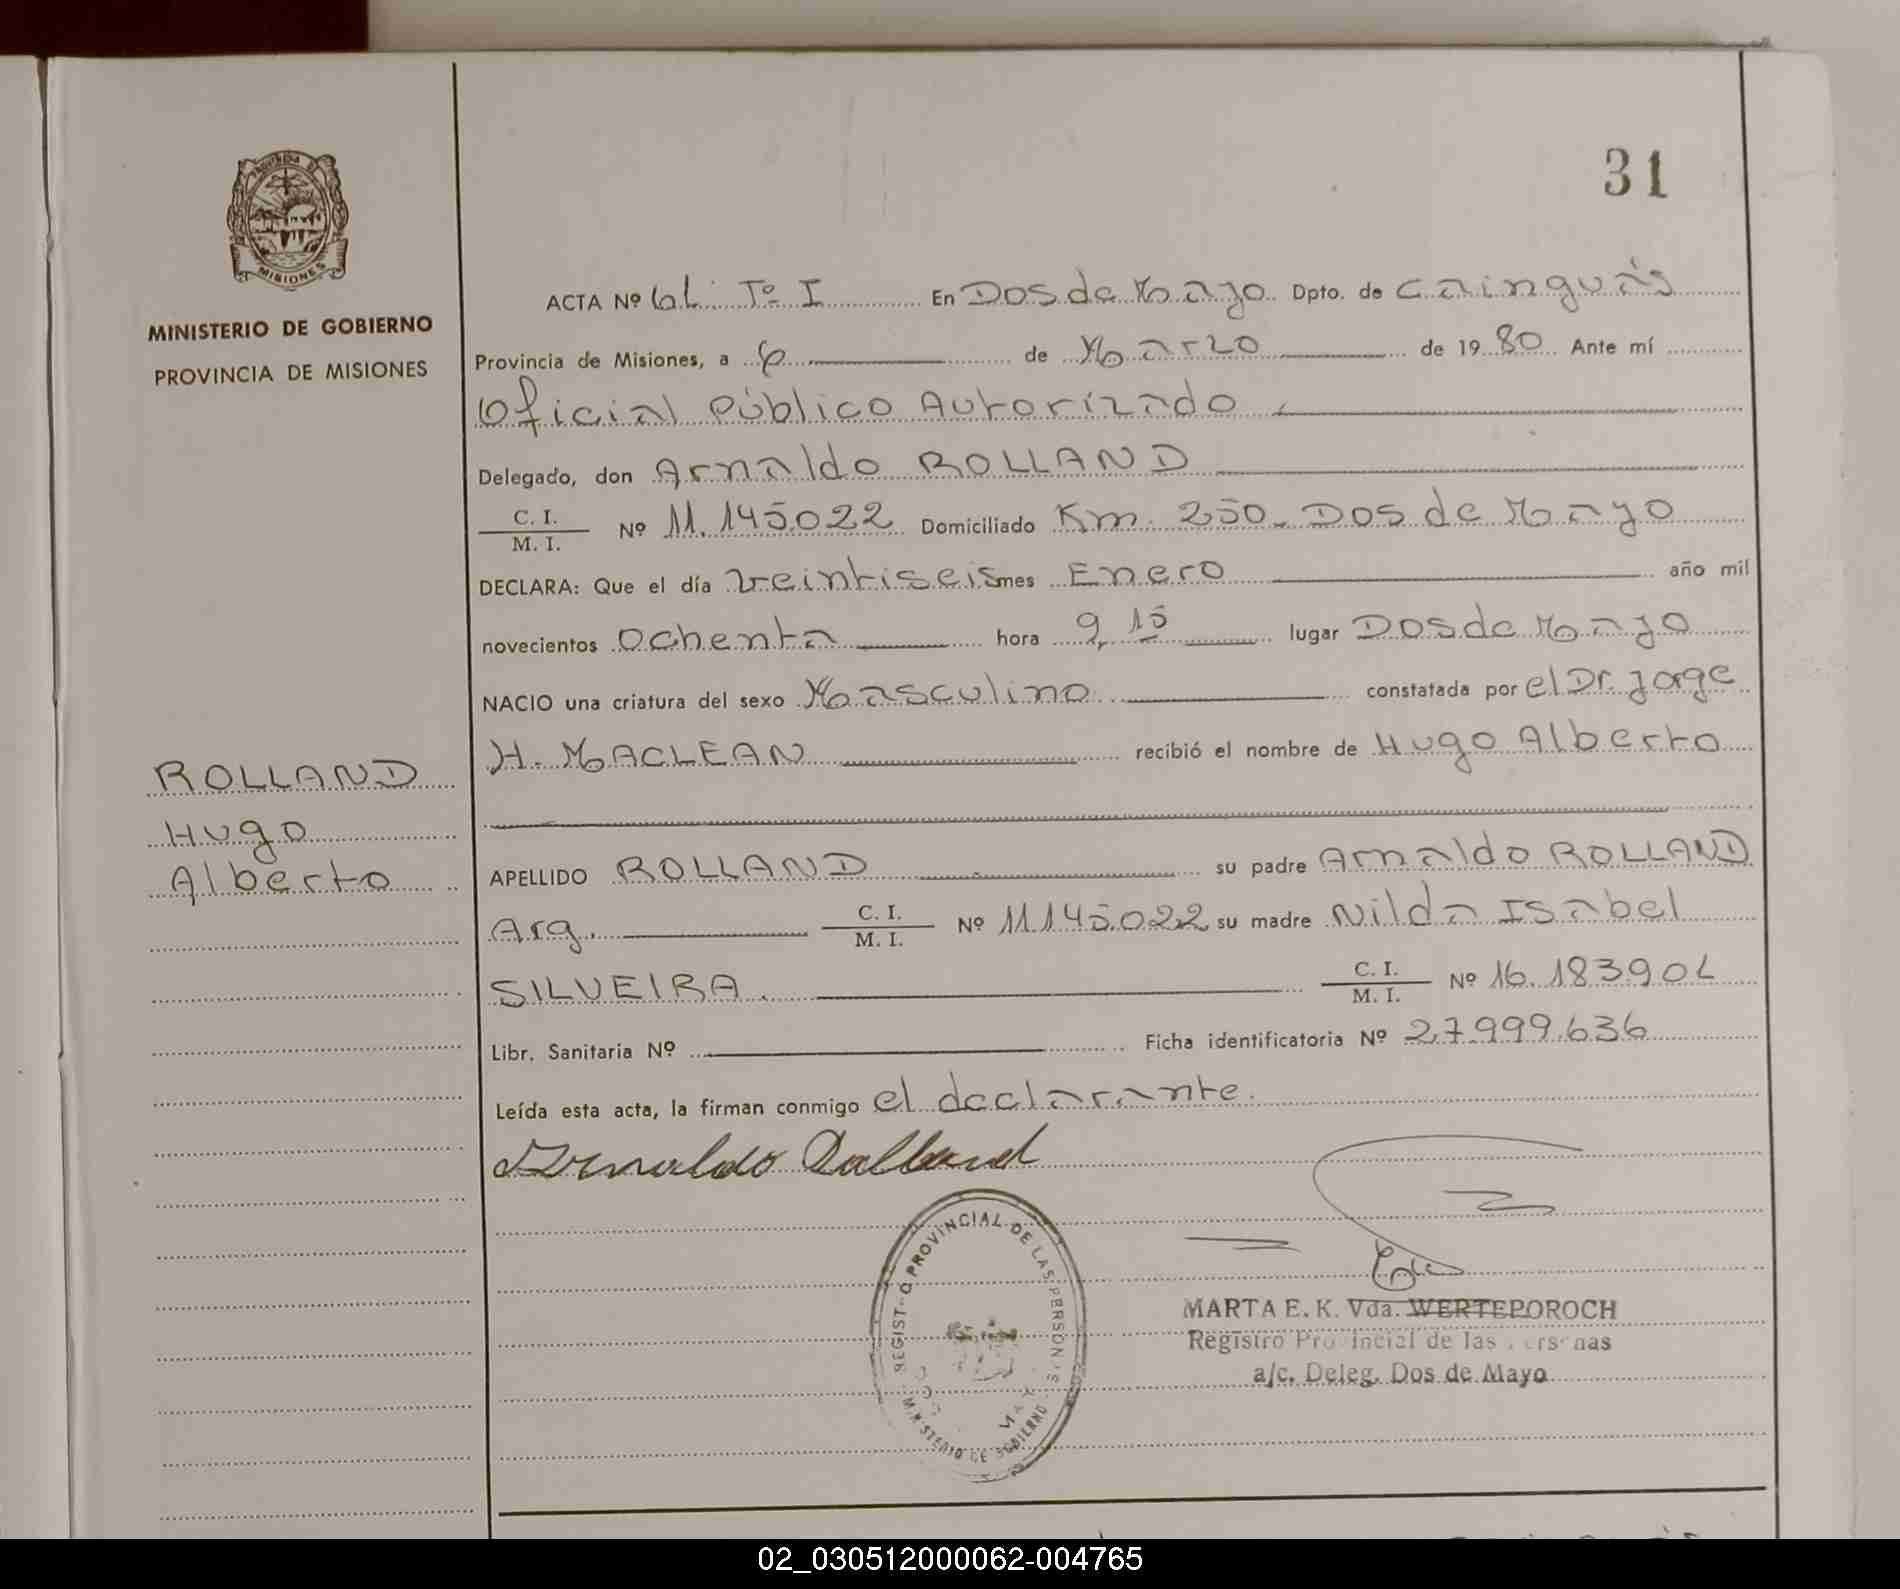 31
PROVINCIA DE
MISIONES
MINISTERIO DE GOBIERNO
PROVINCIA DE MISIONES
ROLLAND
Hugo
Alberto
ACTA Nº 61. Tº I En Dos de Mayo Dpto. de Cainguás
Provincia de Misiones, a 6 de Marzo de 1980 Ante mí
Oficial Público Autorizado
Delegado, don Arnaldo ROLLAND
C. I. / M. I. Nº 11.145022 Domiciliado Km. 250. Dos de Mayo
DECLARA: Que el día veintiseis mes Enero año mil
novecientos Ochenta hora 9,15 lugar Dos de Mayo
NACIO una criatura del sexo Masculino constatada por el Dr. Jorge
H. MACLEAN recibió el nombre de Hugo Alberto
APELLIDO ROLLAND su padre Arnaldo ROLLAND
Arg. C. I. / M. I. Nº 11145.022 su madre Nilda Isabel
SILVEIRA. C. I. / M. I. Nº 16.183.901
Libr. Sanitaria Nº Ficha identificatoria Nº 27.999.636
Leída esta acta, la firman conmigo el declarante.
Arnaldo Rolland
REGISTRO PROVINCIAL DE LAS PERSONAS
MINISTERIO DE GOBIERNO
MARTA E. K. Vda. WERTEPOROCH
Registro Provincial de las Personas
a/c. Deleg. Dos de Mayo
02_030512000062-004765